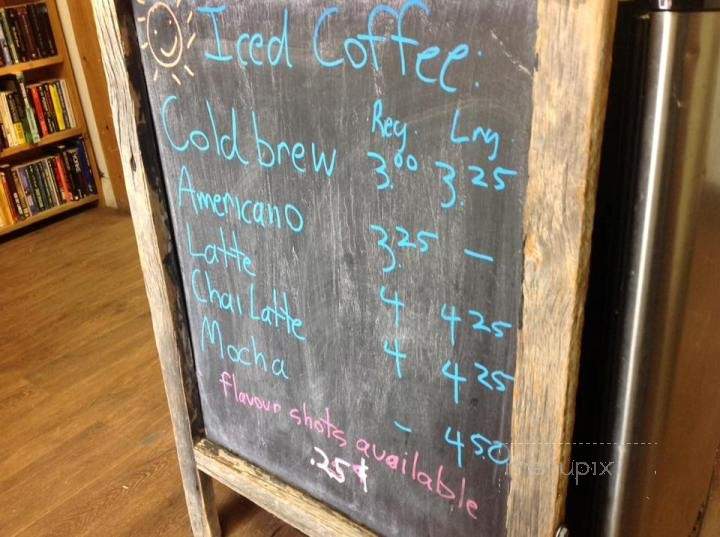 Iced Coffee:
Reg Lrg
Cold brew 3.00 3.25
Americano 3.25 –
Latte 4 4 25
Chai Latte 4 4 25
Mocha – 4 50
flavour shots available
.25¢